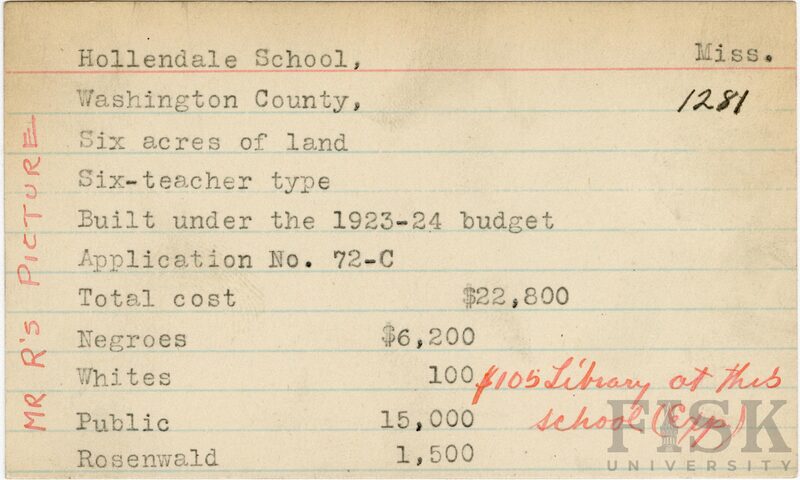 Hollendale School, Miss.
Washington County, 1281
Six acres of land
Six-teacher type
Built under the 1923-24 budget
Application No. 72-C
Total cost $22,800
Negroes $6,200
Whites 100 $105 Library at this
Public 15,000 school (Exp)
Rosenwald 1,500
MR R'S PICTURE
FISK
UNIVERSITY